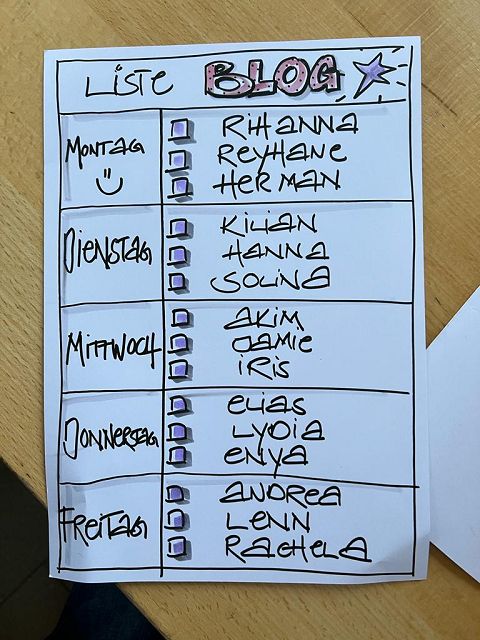 LISTE BLOG
MONTAG
RIHANNA
REYHANE
HERMAN
DIENSTAG
KILIAN
HANNA
SOLINA
MITTWOCH
AKIM
JAMIE
IRIS
DONNERSTAG
ELIAS
LYDIA
ENYA
FREITAG
ANDREA
LENN
RACHELA